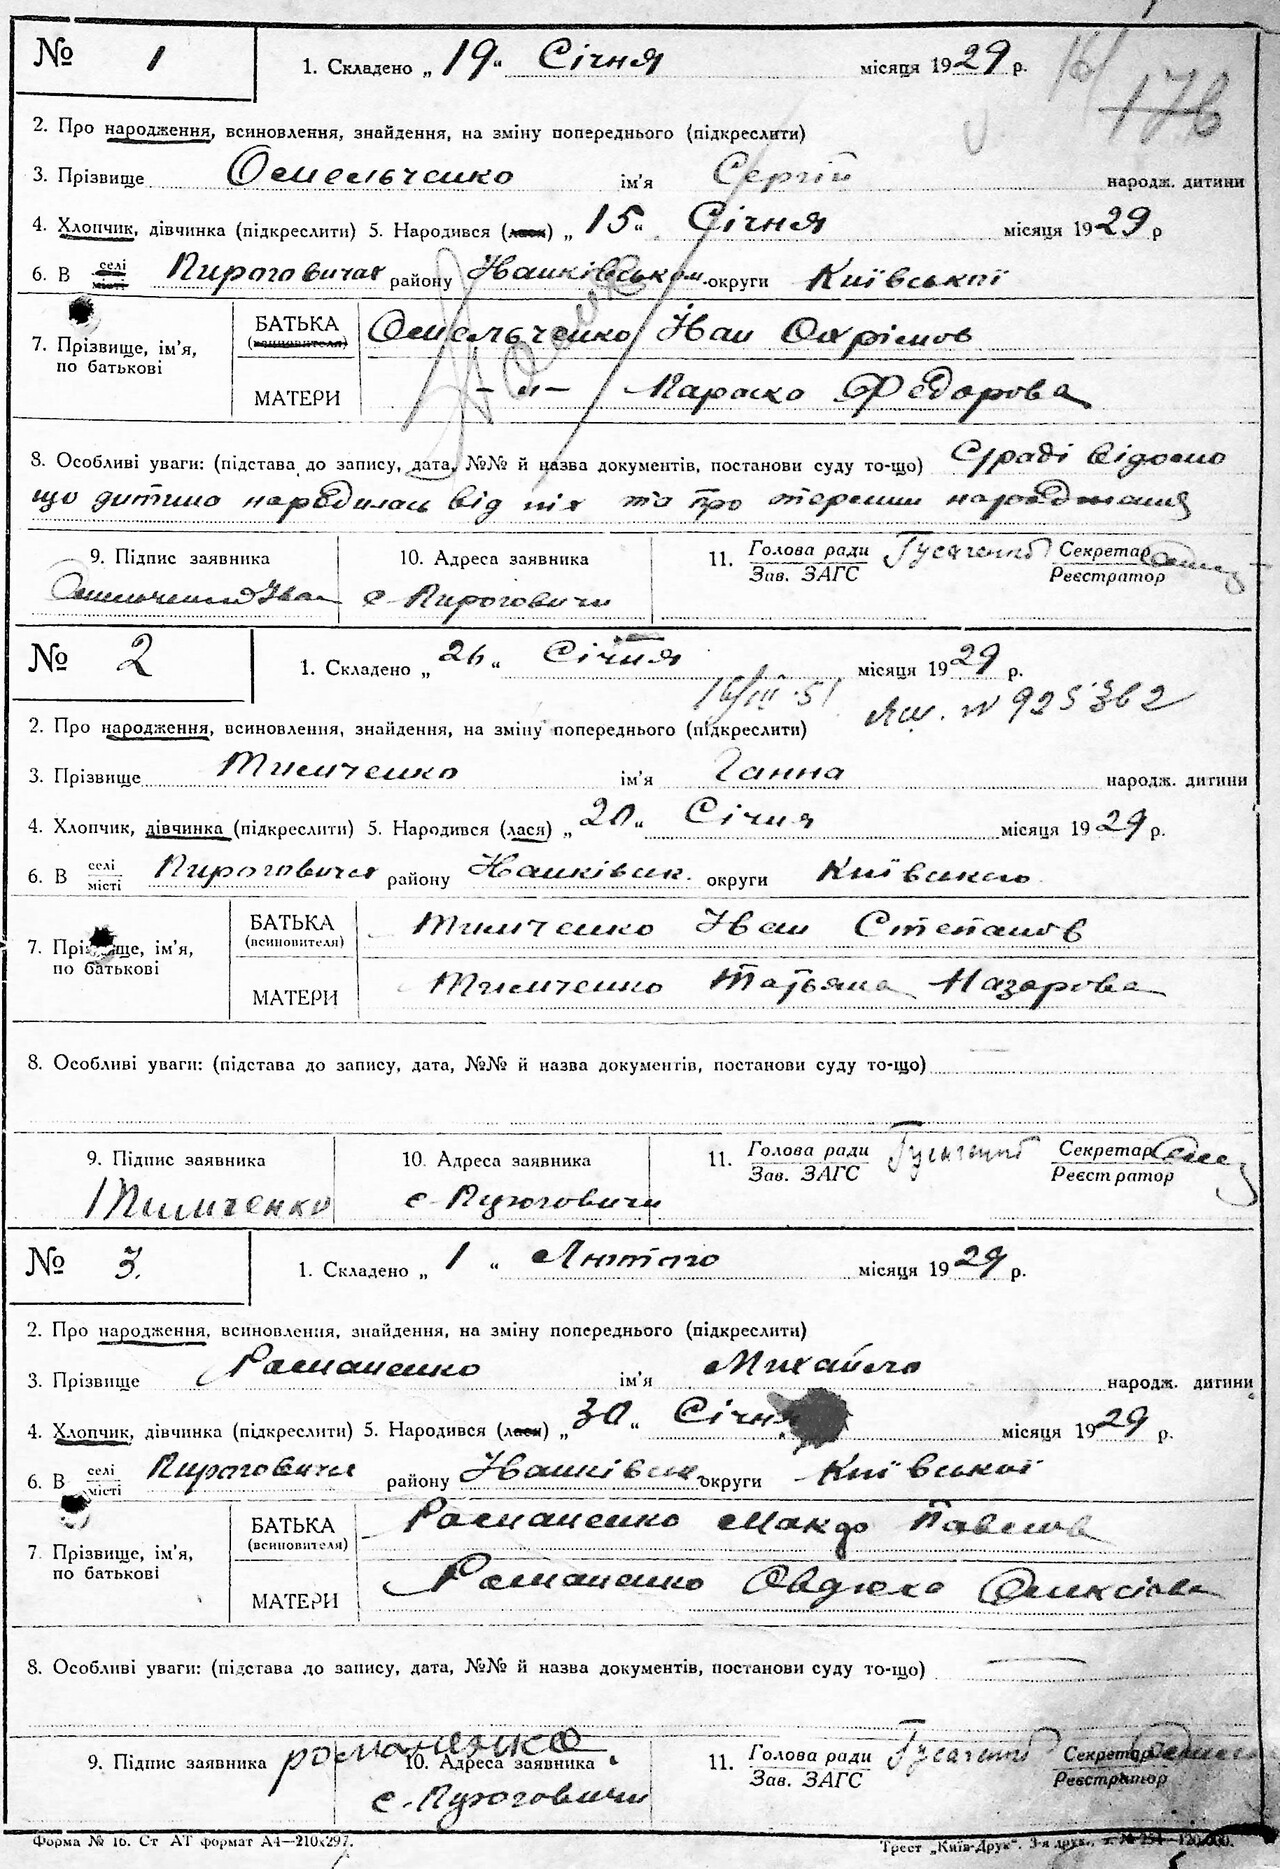 № 1 1. Складено „19“ Січня місяця 1929 р.
16/ 17в
2. Про народження, всиновлення, знайдення, на зміну попереднього (підкреслити)
3. Прізвище Омельченко ім'я Сергій народж. дитини
4. Хлопчик, дівчинка (підкреслити) 5. Народився (лася) „15“ Січня місяця 1929 р
6. В селі місті Пироговичах району Іванківськом округи Київської
7. Прізвище, ім'я, по батькові
БАТЬКА (всиновителя) Омельченко Іван Охрімов
МАТЕРИ —„— Параска Федорова
8. Особливі уваги: (підстава до запису, дата, №№ й назва документів, постанови суду то-що) Сраді відомо
що дитина народилась від них та про термин народження
9. Підпис заявника 10. Адреса заявника 11. Голова ради Гусаченко Секретар
Зав. ЗАГС Реєстратор
Омельченко Іван с. Пироговичи
№ 2 1. Складено „26“ Січня місяця 1929 р.
16/III-51 № 925362
2. Про народження, всиновлення, знайдення, на зміну попереднього (підкреслити)
3. Прізвище Тимченко ім'я Ганна народж. дитини
4. Хлопчик, дівчинка (підкреслити) 5. Народився (лася) „20“ Січня місяця 1929 р.
6. В селі місті Пироговичах району Іванківськ. округи Київської
7. Прізвище, ім'я, по батькові
БАТЬКА (всиновителя) Тимченко Іван Степанов
МАТЕРИ Тимченко Татьяна Назарова
8. Особливі уваги: (підстава до запису, дата, №№ й назва документів, постанови суду то-що)
9. Підпис заявника 10. Адреса заявника 11. Голова ради Гусаченко Секретар
Зав. ЗАГС Реєстратор
Тимченко с. Пироговичи
№ 3. 1. Складено „1“ Лютого місяця 1929 р.
2. Про народження, всиновлення, знайдення, на зміну попереднього (підкреслити)
3. Прізвище Романенко ім'я Михайло народж. дитини
4. Хлопчик, дівчинка (підкреслити) 5. Народився (лася) „30“ Січня місяця 1929 р.
6. В селі місті Пироговичах району Іванківськ округи Київської
7. Прізвище, ім'я, по батькові
БАТЬКА (всиновителя) Романенко Макар Павлов
МАТЕРИ Романенко Овдюха Олексієва
8. Особливі уваги: (підстава до запису, дата, №№ й назва документів, постанови суду то-що)
9. Підпис заявника романенко 10. Адреса заявника 11. Голова ради Гусаченко Секретар
Зав. ЗАГС Реєстратор
с. Пироговичи
Форма № 16. Ст АТ формат А4—210х297. Трест „Київ-Друк“. 3-я друк., з. № 254—120.000.